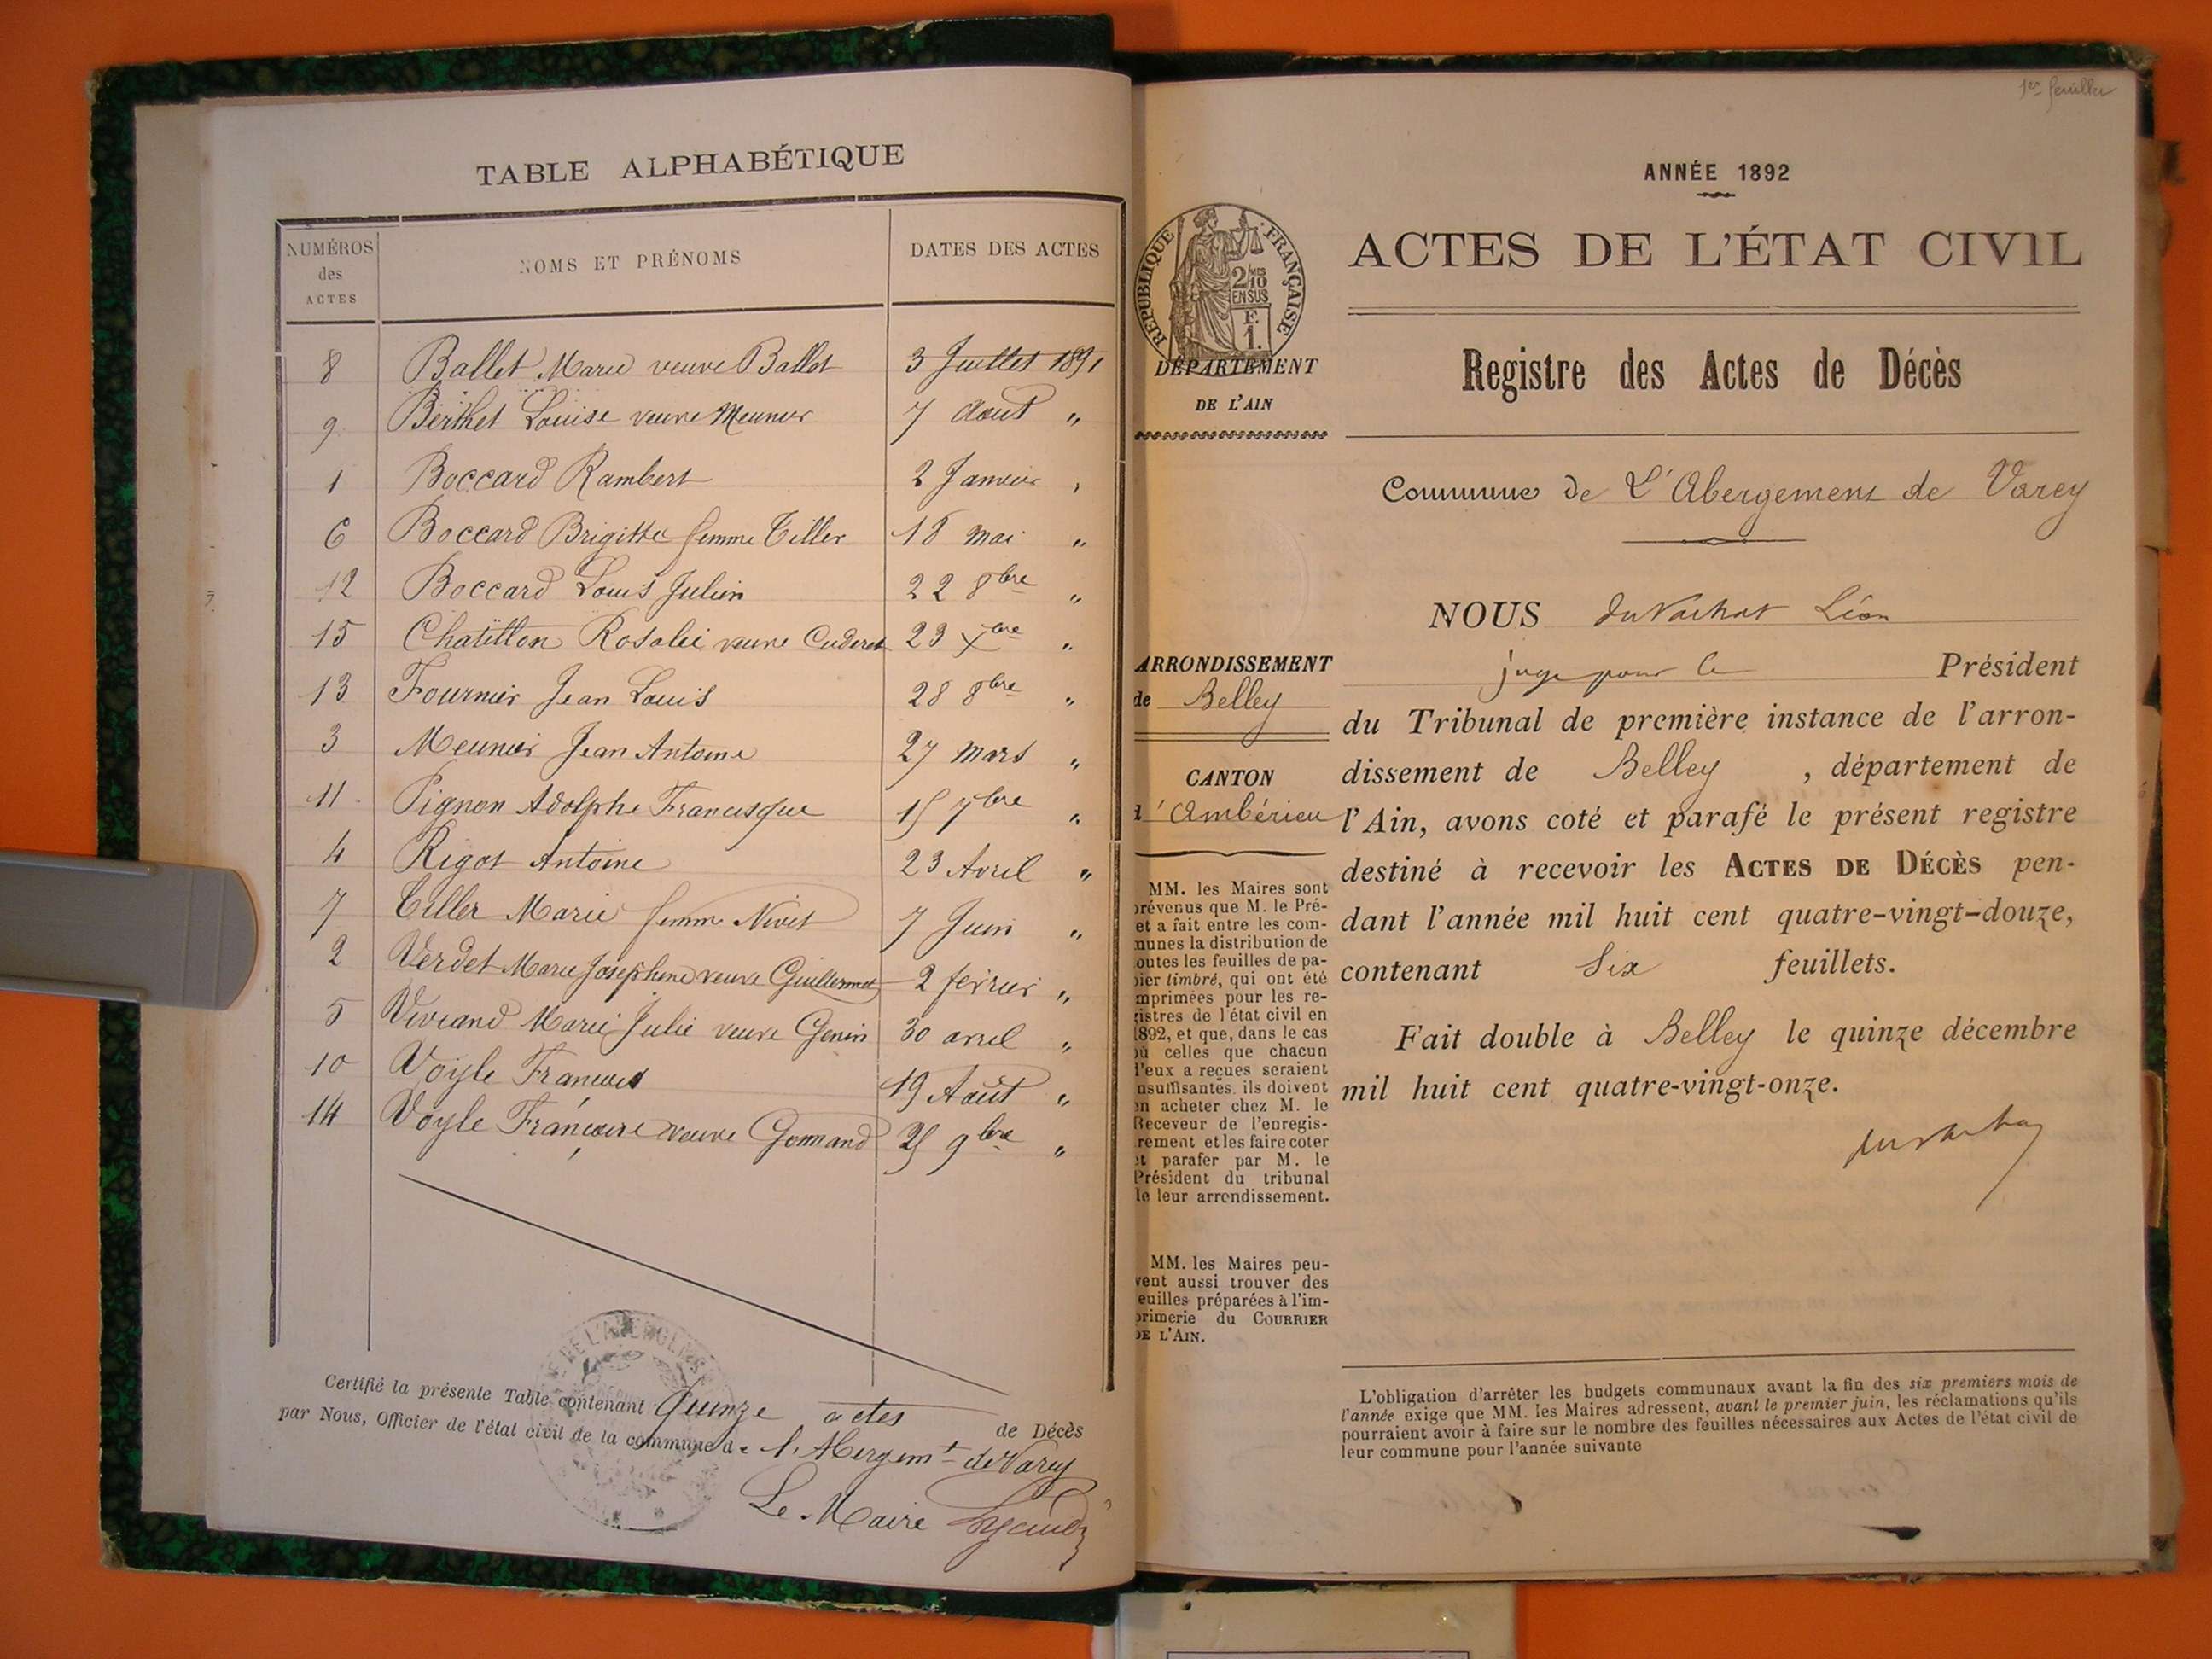 TABLE ALPHABÉTIQUE
NUMÉROS des ACTES NOMS ET PRÉNOMS DATES DES ACTES
8 Ballet Marie veuve Ballot 3 Juillet 1891
9 Berthet Louise veuve Meunier 7 Aout "
1 Boccard Rambert 2 Janvier "
6 Boccard Brigitte femme Tiller 18 mai "
12 Boccard Louis Julien 22 8bre "
15 Chatillon Rosalie veuve Cuderet 23 Xbre "
13 Fournier Jean Louis 28 8bre "
3 Meunier Jean Antoine 27 mars "
11 Pignon Adolphe Francisque 15 7bre "
4 Rigot Antoine 23 Avril "
7 Tiller Marie femme Nivet 7 Juin "
2 Verdet Marie Josephine veuve Guillermet 2 février "
5 Vivrand Marie Julie veuve Genin 30 avril "
10 Voyle François 19 Août "
14 Voyle Françoise veuve Gonnand 25 9bre "
Certifié la présente Table contenant Quinze actes de Décès
par Nous, Officier de l'état civil de la commune de l'Abergemt de Varey
Le Maire
1er feuillet
ANNÉE 1892
ACTES DE L'ÉTAT CIVIL
RÉPUBLIQUE FRANÇAISE
2/10
EN SUS
F.
1.
DÉPARTEMENT
DE L'AIN
Registre des Actes de Décès
Commune de L'Abergement de Varey
ARRONDISSEMENT
de Belley
CANTON
d'Ambérieu
MM. les Maires sont
prévenus que M. le Pré-
et a fait entre les com-
munes la distribution de
toutes les feuilles de pa-
pier timbré, qui ont été
imprimées pour les re-
gistres de l'état civil en
1892, et que, dans le cas
où celles que chacun
d'eux a reçues seraient
insuffisantes, ils doivent
en acheter chez M. le
Receveur de l'enregis-
trement et les faire coter
et parafer par M. le
Président du tribunal
de leur arrondissement.
MM. les Maires peu-
vent aussi trouver des
feuilles préparées à l'im-
primerie du COURRIER
DE L'AIN.
NOUS duVachat Léon
juge pour le Président
du Tribunal de première instance de l'arron-
dissement de Belley , département de
l'Ain, avons coté et parafé le présent registre
destiné à recevoir les ACTES DE DÉCÈS pen-
dant l'année mil huit cent quatre-vingt-douze,
contenant Six feuillets.
Fait double à Belley le quinze décembre
mil huit cent quatre-vingt-onze.
duVachat
L'obligation d'arrêter les budgets communaux avant la fin des six premiers mois de
l'année exige que MM. les Maires adressent, avant le premier juin, les réclamations qu'ils
pourraient avoir à faire sur le nombre des feuilles nécessaires aux Actes de l'état civil de
leur commune pour l'année suivante